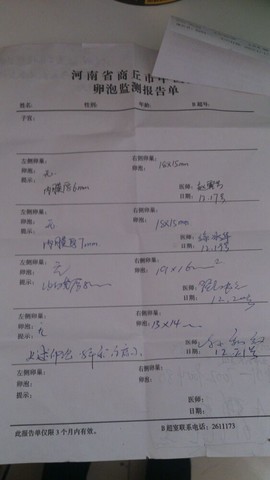 河南省商丘市中
卵泡监测报告单
姓名: 性别: 年龄: B超号:
子宫:
左侧卵巢: 右侧卵巢:
卵泡: 无 卵泡: 18×15mm
提示: 内膜厚6mm 医师:
日期: 12.17号
左侧卵巢: 右侧卵巢:
卵泡: 无 卵泡: 18×15mm
提示: 内膜厚7mm 医师:
日期: 12.19号
左侧卵巢: 右侧卵巢:
卵泡: 无 卵泡: 19×16mm
提示: 医师:
日期: 12.20号
左侧卵巢: 右侧卵巢:
卵泡: 卵泡: 15×14mm
提示: 医师:
日期: 12.21号
左侧卵巢: 右侧卵巢:
卵泡: 卵泡:
提示: 医师:
日期:
此报告单仅限3个月内有效。 B超室联系电话: 2611173